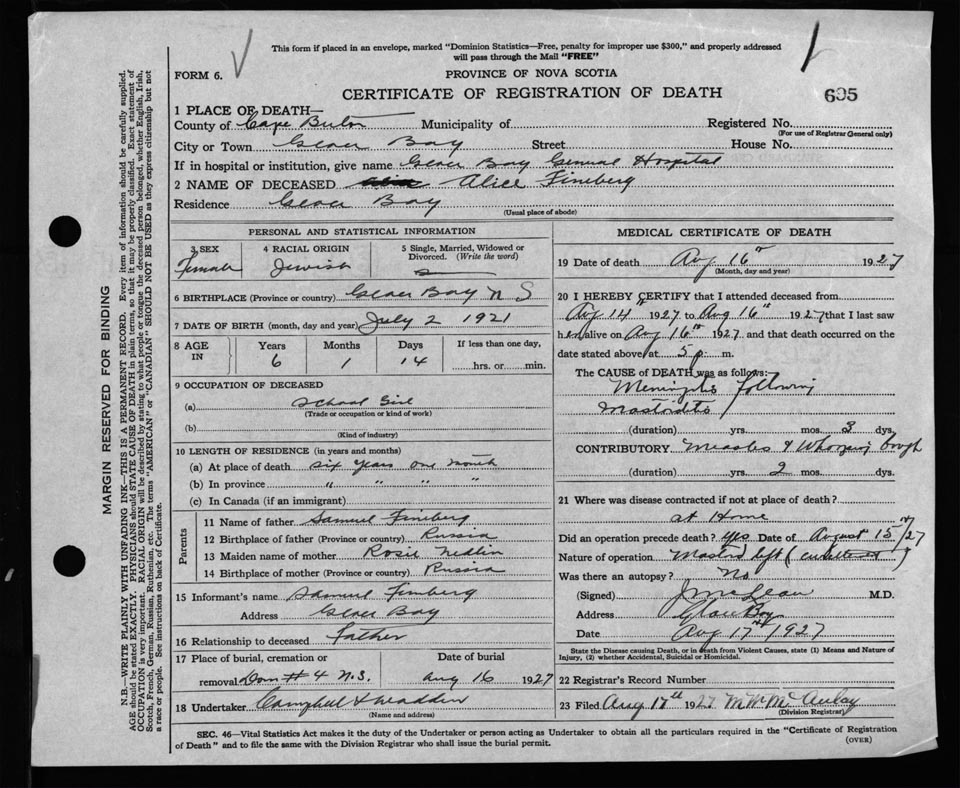 This form if placed in an envelope, marked "Dominion Statistics—Free, penalty for improper use $300," and properly addressed
will pass through the Mail "FREE"
FORM 6.
PROVINCE OF NOVA SCOTIA
CERTIFICATE OF REGISTRATION OF DEATH
695
1 PLACE OF DEATH—
County of Cape Breton Municipality of Registered No.
(For use of Registrar General only)
City or Town Glace Bay Street House No.
If in hospital or institution, give name Glace Bay General Hospital
2 NAME OF DECEASED Alice Fineberg
Residence Glace Bay
(Usual place of abode)
PERSONAL AND STATISTICAL INFORMATION
3 SEX Female
4 RACIAL ORIGIN Jewish
5 Single, Married, Widowed or Divorced. (Write the word) S
6 BIRTHPLACE (Province or country) Glace Bay N S
7 DATE OF BIRTH (month, day and year) July 2 1921
8 AGE IN Years 6 Months 1 Days 14 If less than one day, hrs. or min.
9 OCCUPATION OF DECEASED
(a) School Girl
(Trade or occupation or kind of work)
(b)
(Kind of industry)
10 LENGTH OF RESIDENCE (in years and months)
(a) At place of death six years one month
(b) In province " " " "
(c) In Canada (if an immigrant)
Parents
11 Name of father Samuel Fineberg
12 Birthplace of father (Province or country) Russia
13 Maiden name of mother Rosie Nedlin
14 Birthplace of mother (Province or country) Russia
15 Informant's name Samuel Fineberg
Address Glace Bay
16 Relationship to deceased Father
17 Place of burial, cremation or removal Dom #4 N.S. Date of burial Aug 16 1927
18 Undertaker Campbell & Madden
(Name and address)
MEDICAL CERTIFICATE OF DEATH
19 Date of death Aug 16th 1927
(Month, day and year)
20 I HEREBY CERTIFY that I attended deceased from
Aug 14th 1927 to Aug 16th 1927 that I last saw
her alive on Aug 16th 1927. and that death occurred on the
date stated above at 5 p. m.
The CAUSE of DEATH was as follows:
Meningitis following
Mastoiditis
(duration) yrs. mos. 3 dys.
CONTRIBUTORY Measles & Whooping Cough
(duration) yrs. 2 mos. dys.
21 Where was disease contracted if not at place of death?
at Home
Did an operation precede death? yes Date of August 15th/27
Nature of operation Mastoid left
Was there an autopsy? No
(Signed) J McLean M.D.
Address Glace Bay
Date Aug 17th 1927
State the Disease causing Death, or in death from Violent Causes, state (1) Means and Nature of
Injury, (2) whether Accidental, Suicidal or Homicidal.
22 Registrar's Record Number
23 Filed Aug 17th 1927 M McAulay
(Division Registrar)
SEC. 46—Vital Statistics Act makes it the duty of the Undertaker or person acting as Undertaker to obtain all the particulars required in the "Certificate of Registration
of Death" and to file the same with the Division Registrar who shall issue the burial permit.
(OVER)
MARGIN RESERVED FOR BINDING
N.B.—WRITE PLAINLY WITH UNFADING INK—THIS IS A PERMANENT RECORD. Every item of information should be carefully supplied.
AGE should be stated EXACTLY. PHYSICIANS should STATE CAUSE OF DEATH in plain terms, so that it may be properly classified. Exact statement of
OCCUPATION is very important. RACIAL ORIGIN will be described by stating to what people or tongue the deceased person belonged, whether English, Irish,
Scotch, French, German, Russian, Ruthenian, etc. The terms "AMERICAN" or "CANADIAN" SHOULD NOT BE USED as they express citizenship but not
a race or people. See instructions on back of Certificate.